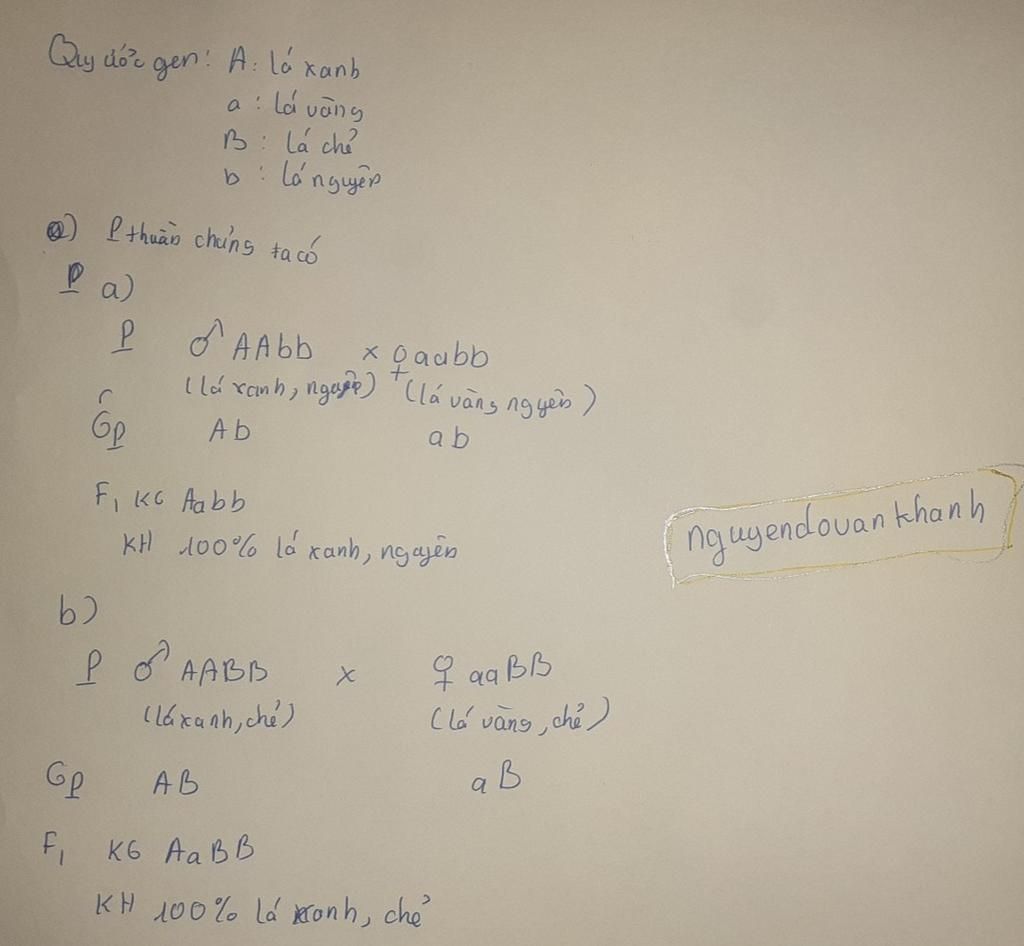 Quy ước gen: A: lá xanh
a: lá vàng
B: lá chẻ
b: lá nguyên
a) P thuần chủng ta có
P a)
P ♂ AAbb x ♀ aabb
(lá xanh, nguyên) (lá vàng nguyên)
Gp Ab ab
F1 KG Aabb
KH 100% lá xanh, nguyên
nguyendovankhanh
b)
P ♂ AABB x ♀ aaBB
(lá xanh, chẻ) (lá vàng, chẻ)
Gp AB aB
F1 KG AaBB
KH 100% lá xanh, chẻ